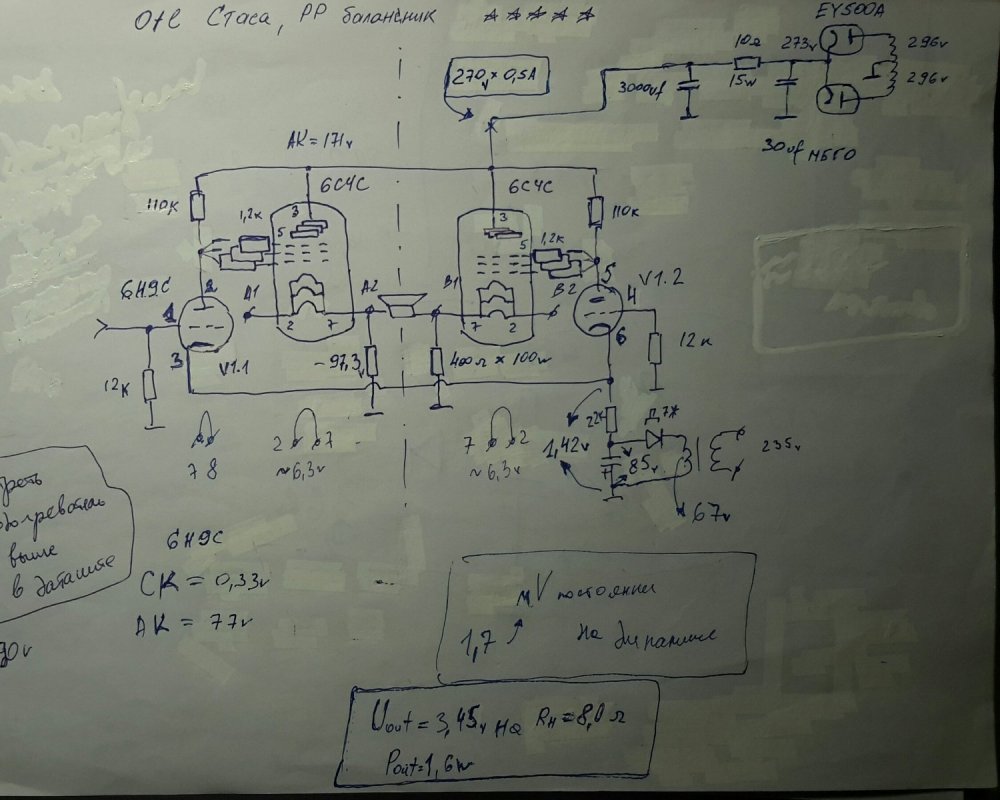 OTL Стаса, PP балансник ★★★★★
EY500A
270v × 0,5A
3000uf
10Ω
15w
273v
296v
296v
30uf МБГО
АК = 171v
6С4С
6С4С
110к
1,2к
3
5
3
5
1,2к
110к
6Н9С
2
1
3
V1.1
А1
2
7
А2
В1
7
2
В2
5
4
6
V1.2
12к
-97,3v
400Ω × 100w
12к
7 8
2 7
≈6,3v
7 2
≈6,3v
1,42v
22к
Д7Ж
85v
235v
67v
выше
в даташите
6Н9С
СК = 0,33v
АК = 77v
mV постоянки
1,7
на динамике
Uout = 3,45v на Rн = 8,0 Ω
Pout = 1,6w